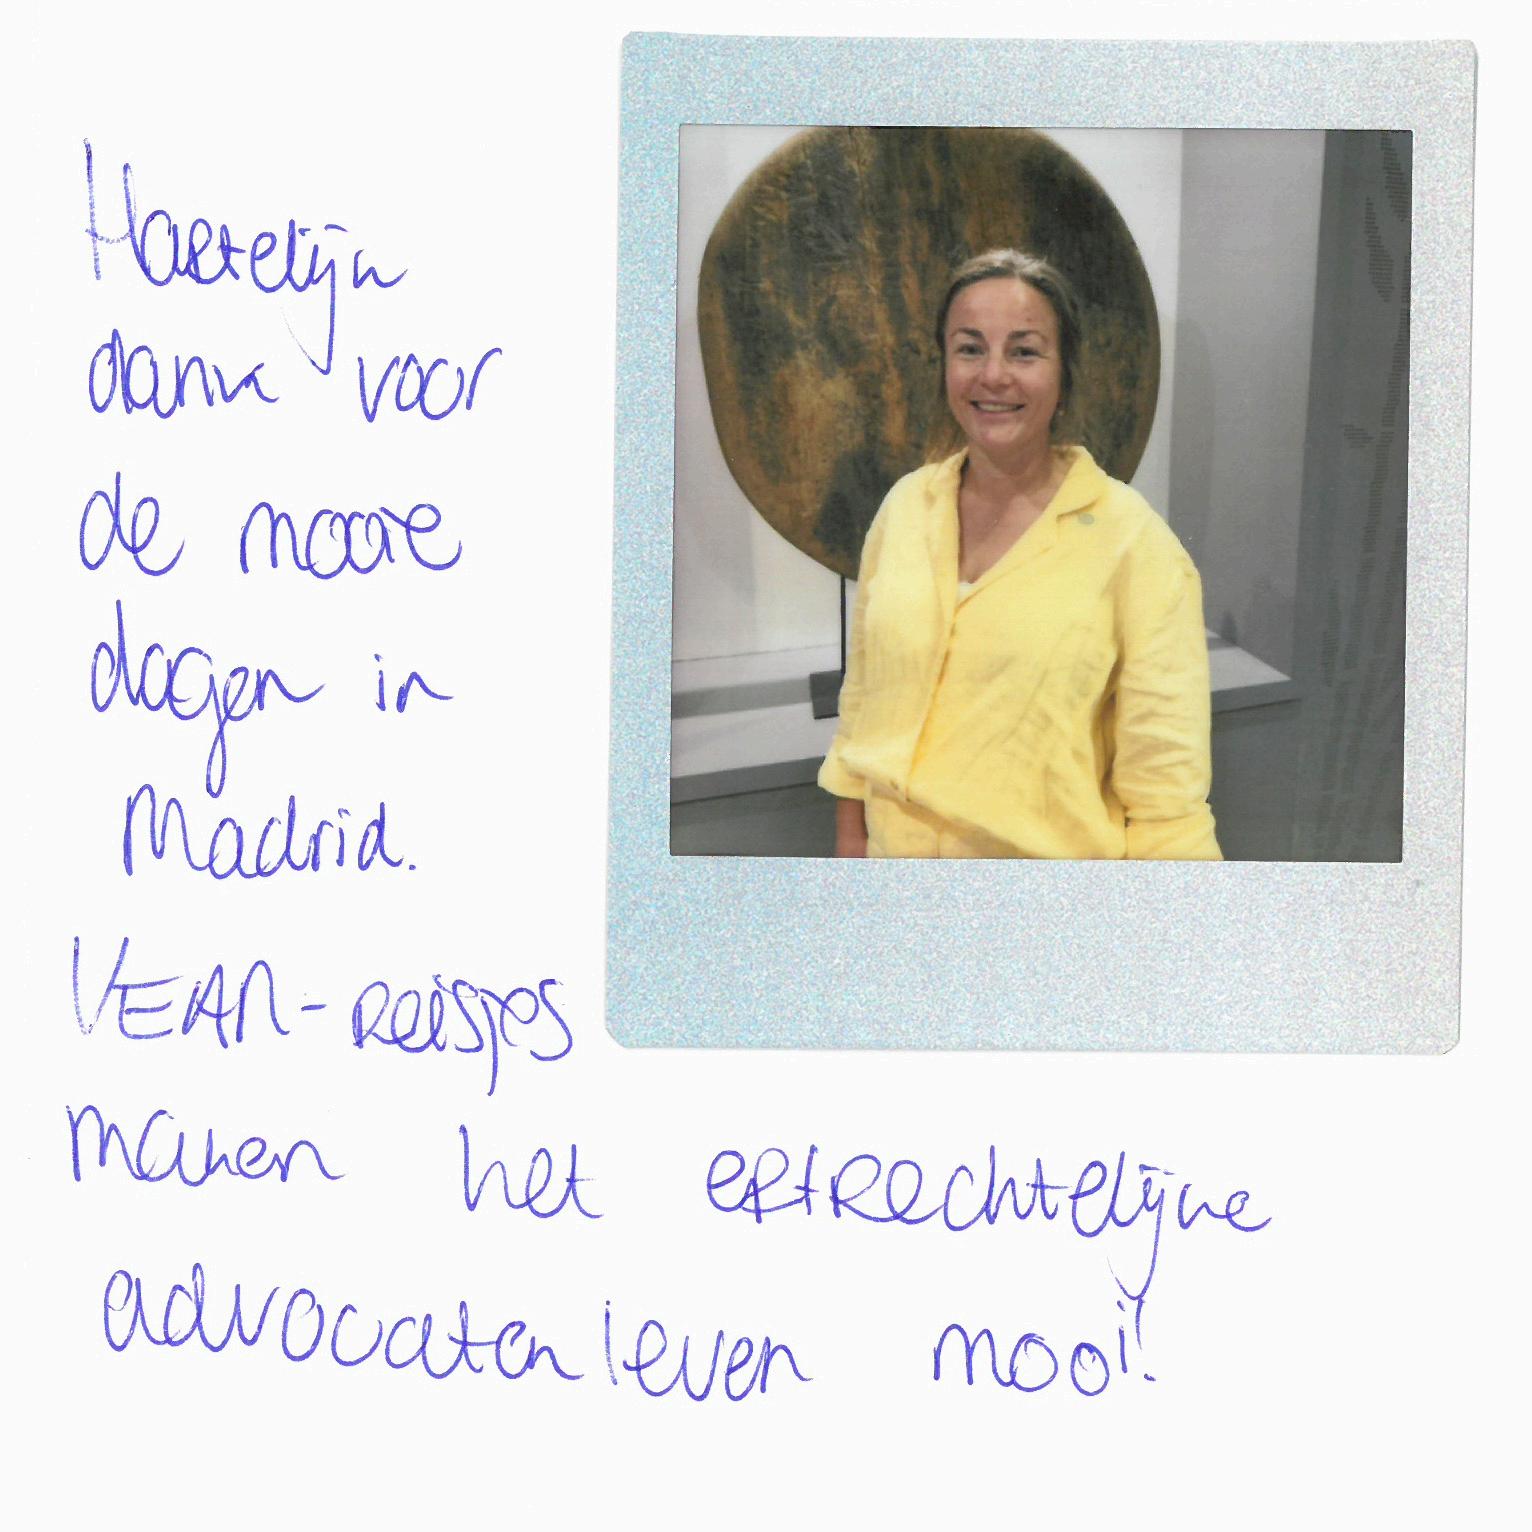 Hartelijk
dank voor
de mooie
dagen in
Madrid.
VEAN-reisjes
maken het erfrechtelijke
advocatenleven mooi!